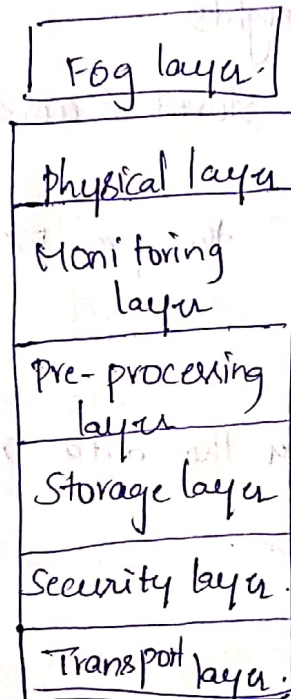 Fog layer.
Physical layer
Monitoring
layer
Pre-processing
layer
Storage layer
Security layer.
Transport layer.